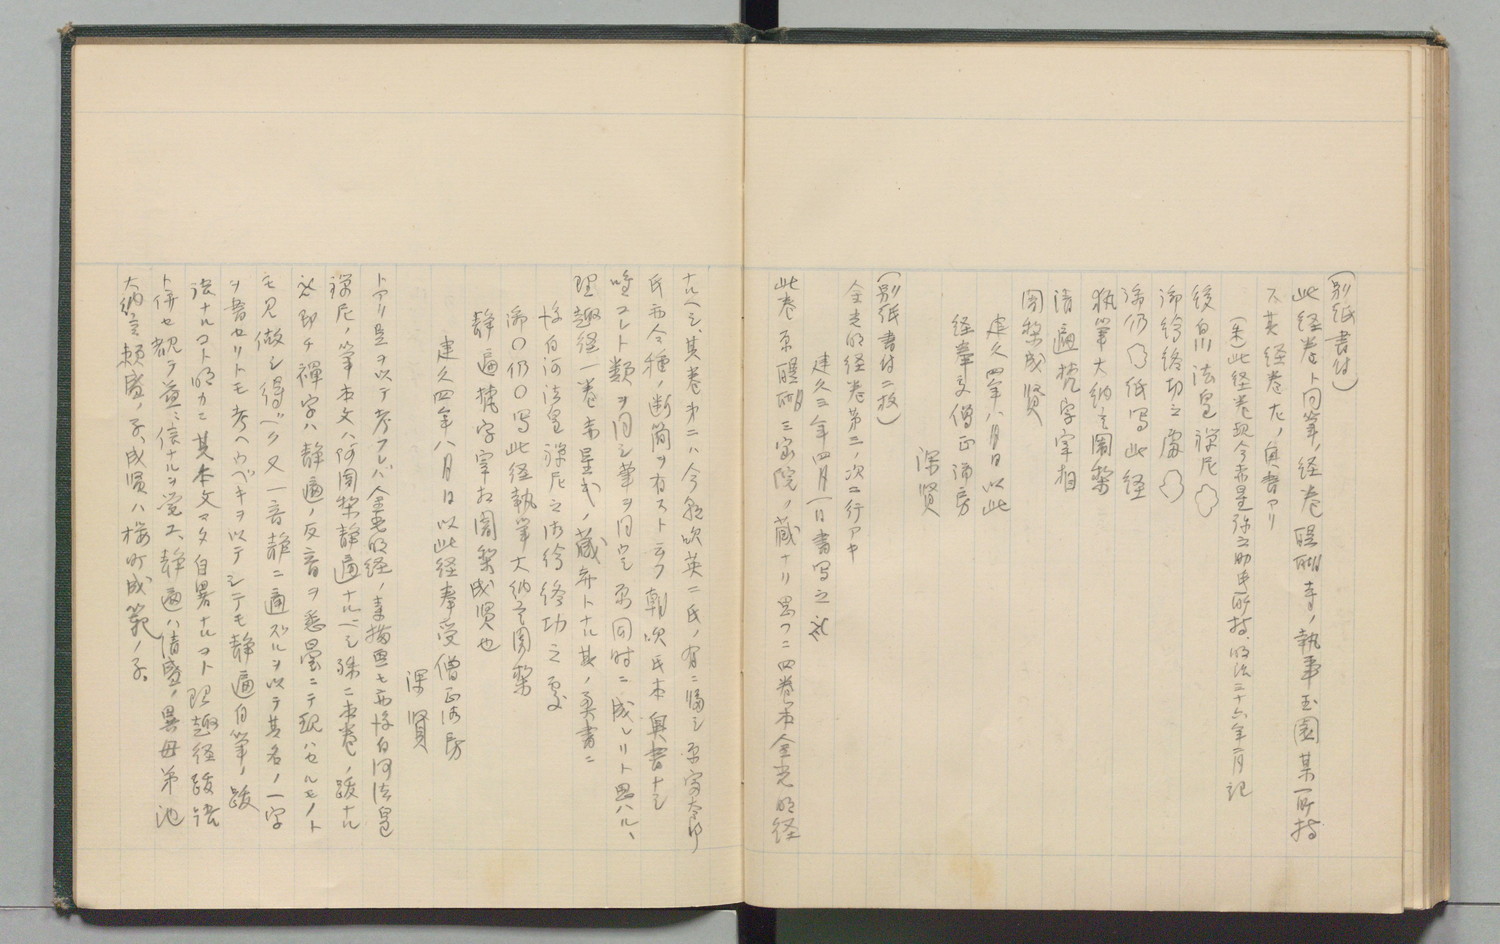 (別紙書付)
此経巻ト同筆ノ経巻醍醐寺ノ執事玉園某所持
ス其経巻左ノ奥書アリ
(朱)此経巻現今赤星弥之助氏所持、明治二十六年二月記
後白川法皇禅尼
御絵終功之處
崩仍 紙写此経
執筆大納言闍梨
静遍梵字宰相
闍梨成賢
建久四年八月日以此
経奉受僧正御房
深賢
(別紙書付二枚)
金光明経巻第三ノ次ニ行アキ
建久三年四月一日書写之
此巻原醍醐三宝院ノ蔵ナリ思フニ四巻本金光明経
ナルヘシ、其巻第二ハ今朝吹英二氏ノ有ニ帰シ原富太郎
氏亦今種ノ断簡ヲ有ストニフ朝吹氏本奥書ナシ
唯コレト類ヲ同シ筆ヲ同クシ原同時ニ成レリト思ハルヽ
理趣経一巻赤星氏ノ蔵弁トナル其ノ奥書ニ
後白河法皇禅尼之御絵終功之處
崩〇仍〇写此経執筆大納言闍梨
静遍梵字宰相闍梨成賢也
建久四年八月日以此経奉受僧正御房
深賢
トアリ是ヲ以テ考フレバ金光明経ノ素描画モ亦後白河法皇
禅尼ノ筆本文ハ何闍梨静遍ナルベシ殊ニ本巻ノ跋ナル
必即チ禅字ハ静遍ノ反音ヲ悉曇ニテ現ハセルモノト
モ見做シ得ベク又一音静ニ通ズルヲ以テ其名ノ一字
ヲ書セリトモ考ヘウベキヲ以テシテモ静遍自筆ノ跋
語ナルコト明カニ其本文マタ自署ナルヲト理趣経跋語
ト併セ観テ益々信ナルヲ覚エ、静遍ハ清盛ノ異母弟池
大納言頼盛ノ子、成賢ハ桜町成範ノ子。